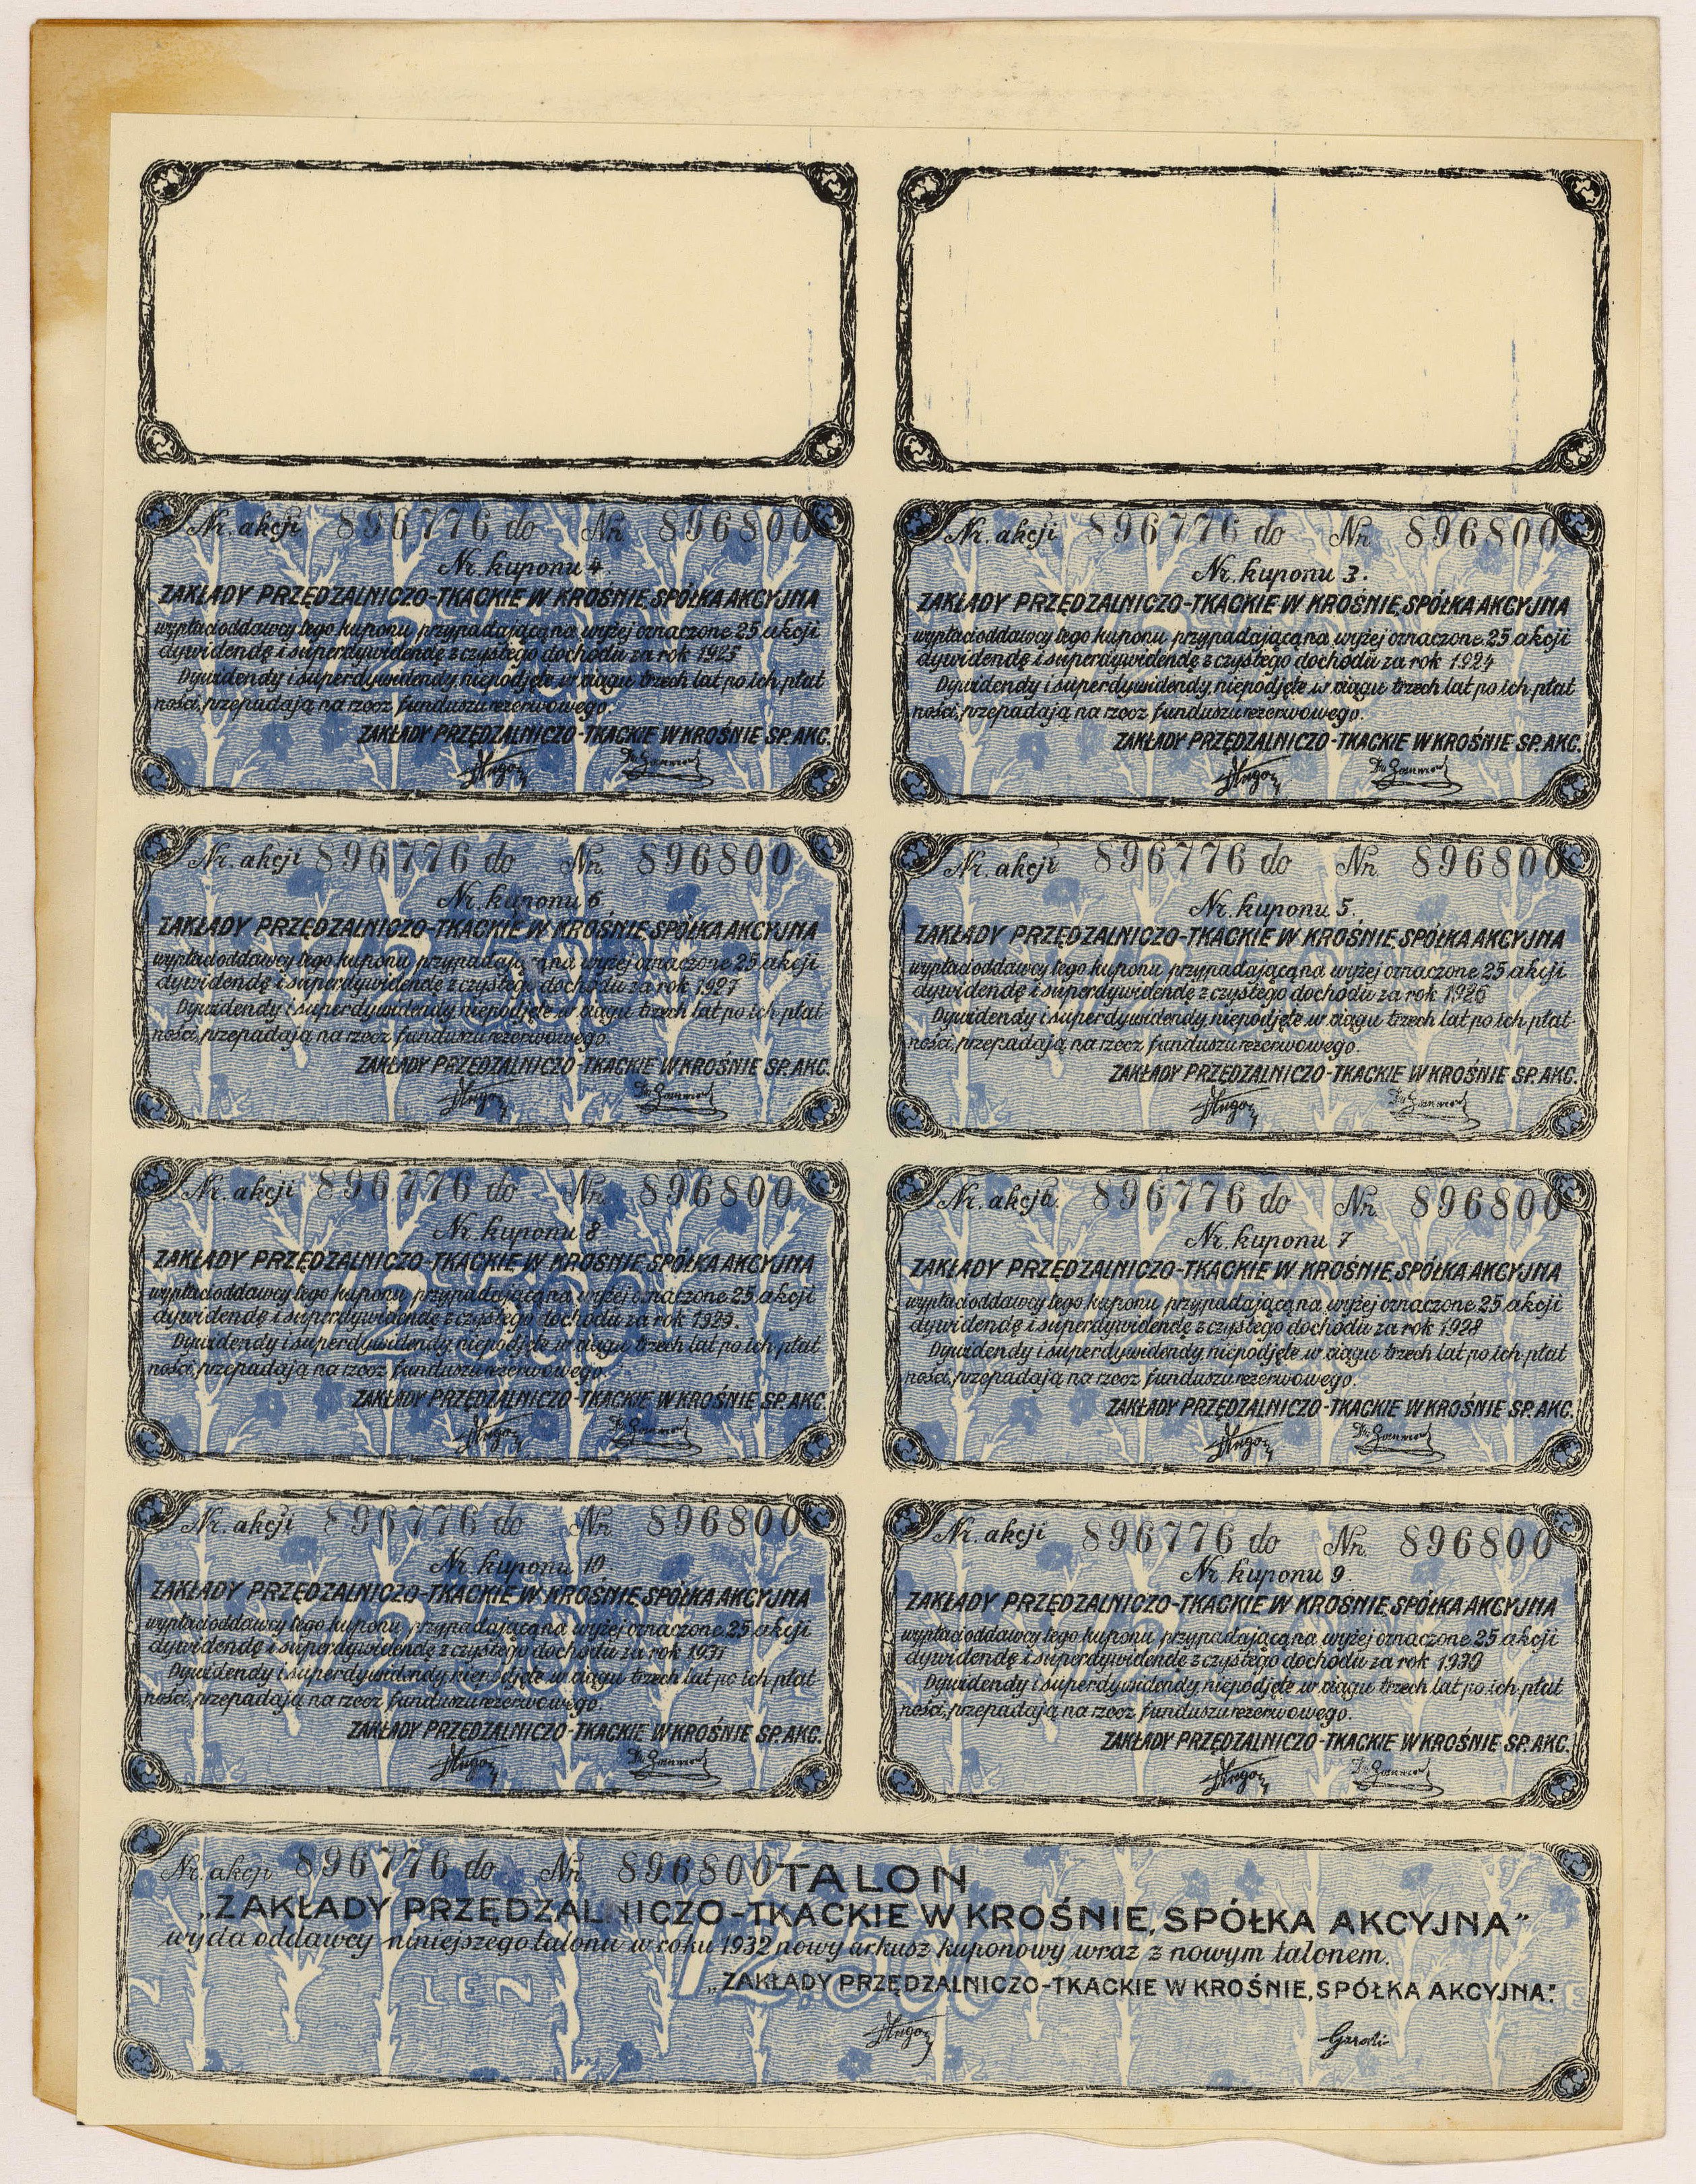 Nr. akcji 896776 do Nr. 896800
Nr. kuponu 4.
ZAKŁADY PRZĘDZALNICZO-TKACKIE W KROŚNIE, SPÓŁKA AKCYJNA
wypłaci oddawcy tego kuponu przypadającą na wyżej oznaczone 25 akcji
dywidendę i superdywidendę z czystego dochodu za rok 1925
Dywidendy i superdywidendy, niepodjęte w ciągu trzech lat po ich płat
ności, przepadają na rzecz funduszu rezerwowego.
ZAKŁADY PRZĘDZALNICZO-TKACKIE W KROŚNIE SP. AKC.
Nr. akcji 896776 do Nr. 896800
Nr. kuponu 3.
ZAKŁADY PRZĘDZALNICZO-TKACKIE W KROŚNIE, SPÓŁKA AKCYJNA
wypłaci oddawcy tego kuponu przypadającą na wyżej oznaczone 25 akcji
dywidendę i superdywidendę z czystego dochodu za rok 1924
Dywidendy i superdywidendy, niepodjęte w ciągu trzech lat po ich płat
ności, przepadają na rzecz funduszu rezerwowego.
ZAKŁADY PRZĘDZALNICZO-TKACKIE W KROŚNIE SP. AKC.
Nr. akcji 896776 do Nr. 896800
Nr. kuponu 6
ZAKŁADY PRZĘDZALNICZO-TKACKIE W KROŚNIE, SPÓŁKA AKCYJNA
wypłaci oddawcy tego kuponu przypadającą na wyżej oznaczone 25 akcji
dywidendę i superdywidendę z czystego dochodu za rok 1927
Dywidendy i superdywidendy, niepodjęte w ciągu trzech lat po ich płat
ności, przepadają na rzecz funduszu rezerwowego.
ZAKŁADY PRZĘDZALNICZO-TKACKIE W KROŚNIE SP. AKC.
Nr. akcji 896776 do Nr. 896800
Nr. kuponu 5.
ZAKŁADY PRZĘDZALNICZO-TKACKIE W KROŚNIE, SPÓŁKA AKCYJNA
wypłaci oddawcy tego kuponu przypadającą na wyżej oznaczone 25 akcji
dywidendę i superdywidendę z czystego dochodu za rok 1926
Dywidendy i superdywidendy, niepodjęte w ciągu trzech lat po ich płat
ności, przepadają na rzecz funduszu rezerwowego.
ZAKŁADY PRZĘDZALNICZO-TKACKIE W KROŚNIE SP. AKC.
Nr. akcji 896776 do Nr. 896800
Nr. kuponu 8.
ZAKŁADY PRZĘDZALNICZO-TKACKIE W KROŚNIE, SPÓŁKA AKCYJNA
wypłaci oddawcy tego kuponu przypadającą na wyżej oznaczone 25 akcji
dywidendę i superdywidendę z czystego dochodu za rok 1929.
Dywidendy i superdywidendy, niepodjęte w ciągu trzech lat po ich płat
ności, przepadają na rzecz funduszu rezerwowego.
ZAKŁADY PRZĘDZALNICZO-TKACKIE W KROŚNIE SP. AKC.
Nr. akcji 896776 do Nr. 896800
Nr. kuponu 7
ZAKŁADY PRZĘDZALNICZO-TKACKIE W KROŚNIE, SPÓŁKA AKCYJNA
wypłaci oddawcy tego kuponu przypadającą na wyżej oznaczone 25 akcji
dywidendę i superdywidendę z czystego dochodu za rok 1928
Dywidendy i superdywidendy, niepodjęte w ciągu trzech lat po ich płat
ności, przepadają na rzecz funduszu rezerwowego.
ZAKŁADY PRZĘDZALNICZO-TKACKIE W KROŚNIE SP. AKC.
Nr. akcji 896776 do Nr. 896800
Nr. kuponu 10
ZAKŁADY PRZĘDZALNICZO-TKACKIE W KROŚNIE, SPÓŁKA AKCYJNA
wypłaci oddawcy tego kuponu przypadającą na wyżej oznaczone 25 akcji
dywidendę i superdywidendę z czystego dochodu za rok 1931
Dywidendy i superdywidendy, niepodjęte w ciągu trzech lat po ich płat
ności, przepadają na rzecz funduszu rezerwowego.
ZAKŁADY PRZĘDZALNICZO-TKACKIE W KROŚNIE SP. AKC.
Nr. akcji 896776 do Nr. 896800
Nr. kuponu 9.
ZAKŁADY PRZĘDZALNICZO-TKACKIE W KROŚNIE, SPÓŁKA AKCYJNA
wypłaci oddawcy tego kuponu przypadającą na wyżej oznaczone 25 akcji
dywidendę i superdywidendę z czystego dochodu za rok 1930
Dywidendy i superdywidendy, niepodjęte w ciągu trzech lat po ich płat
ności, przepadają na rzecz funduszu rezerwowego.
ZAKŁADY PRZĘDZALNICZO-TKACKIE W KROŚNIE SP. AKC.
Nr. akcji 896776 do Nr. 896800 TALON
„ZAKŁADY PRZĘDZALNICZO-TKACKIE W KROŚNIE, SPÓŁKA AKCYJNA”
wyda oddawcy niniejszego talonu w roku 1932 nowy arkusz kuponowy wraz z nowym talonem.
LEN 12.500
„ZAKŁADY PRZĘDZALNICZO-TKACKIE W KROŚNIE, SPÓŁKA AKCYJNA”.